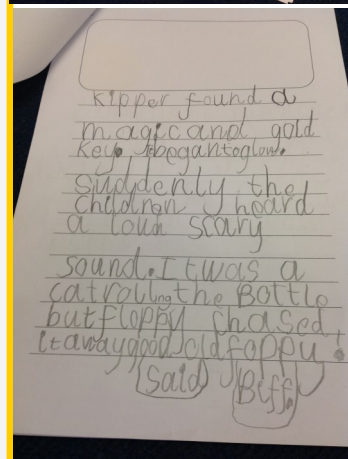 Kipper found a
magic and gold
key. It began to glow.
Suddenly the
children heard
a loud scary
sound. It was a
cat rolling the Bottle
but floppy chased
it away good old foppy!
said Biff.